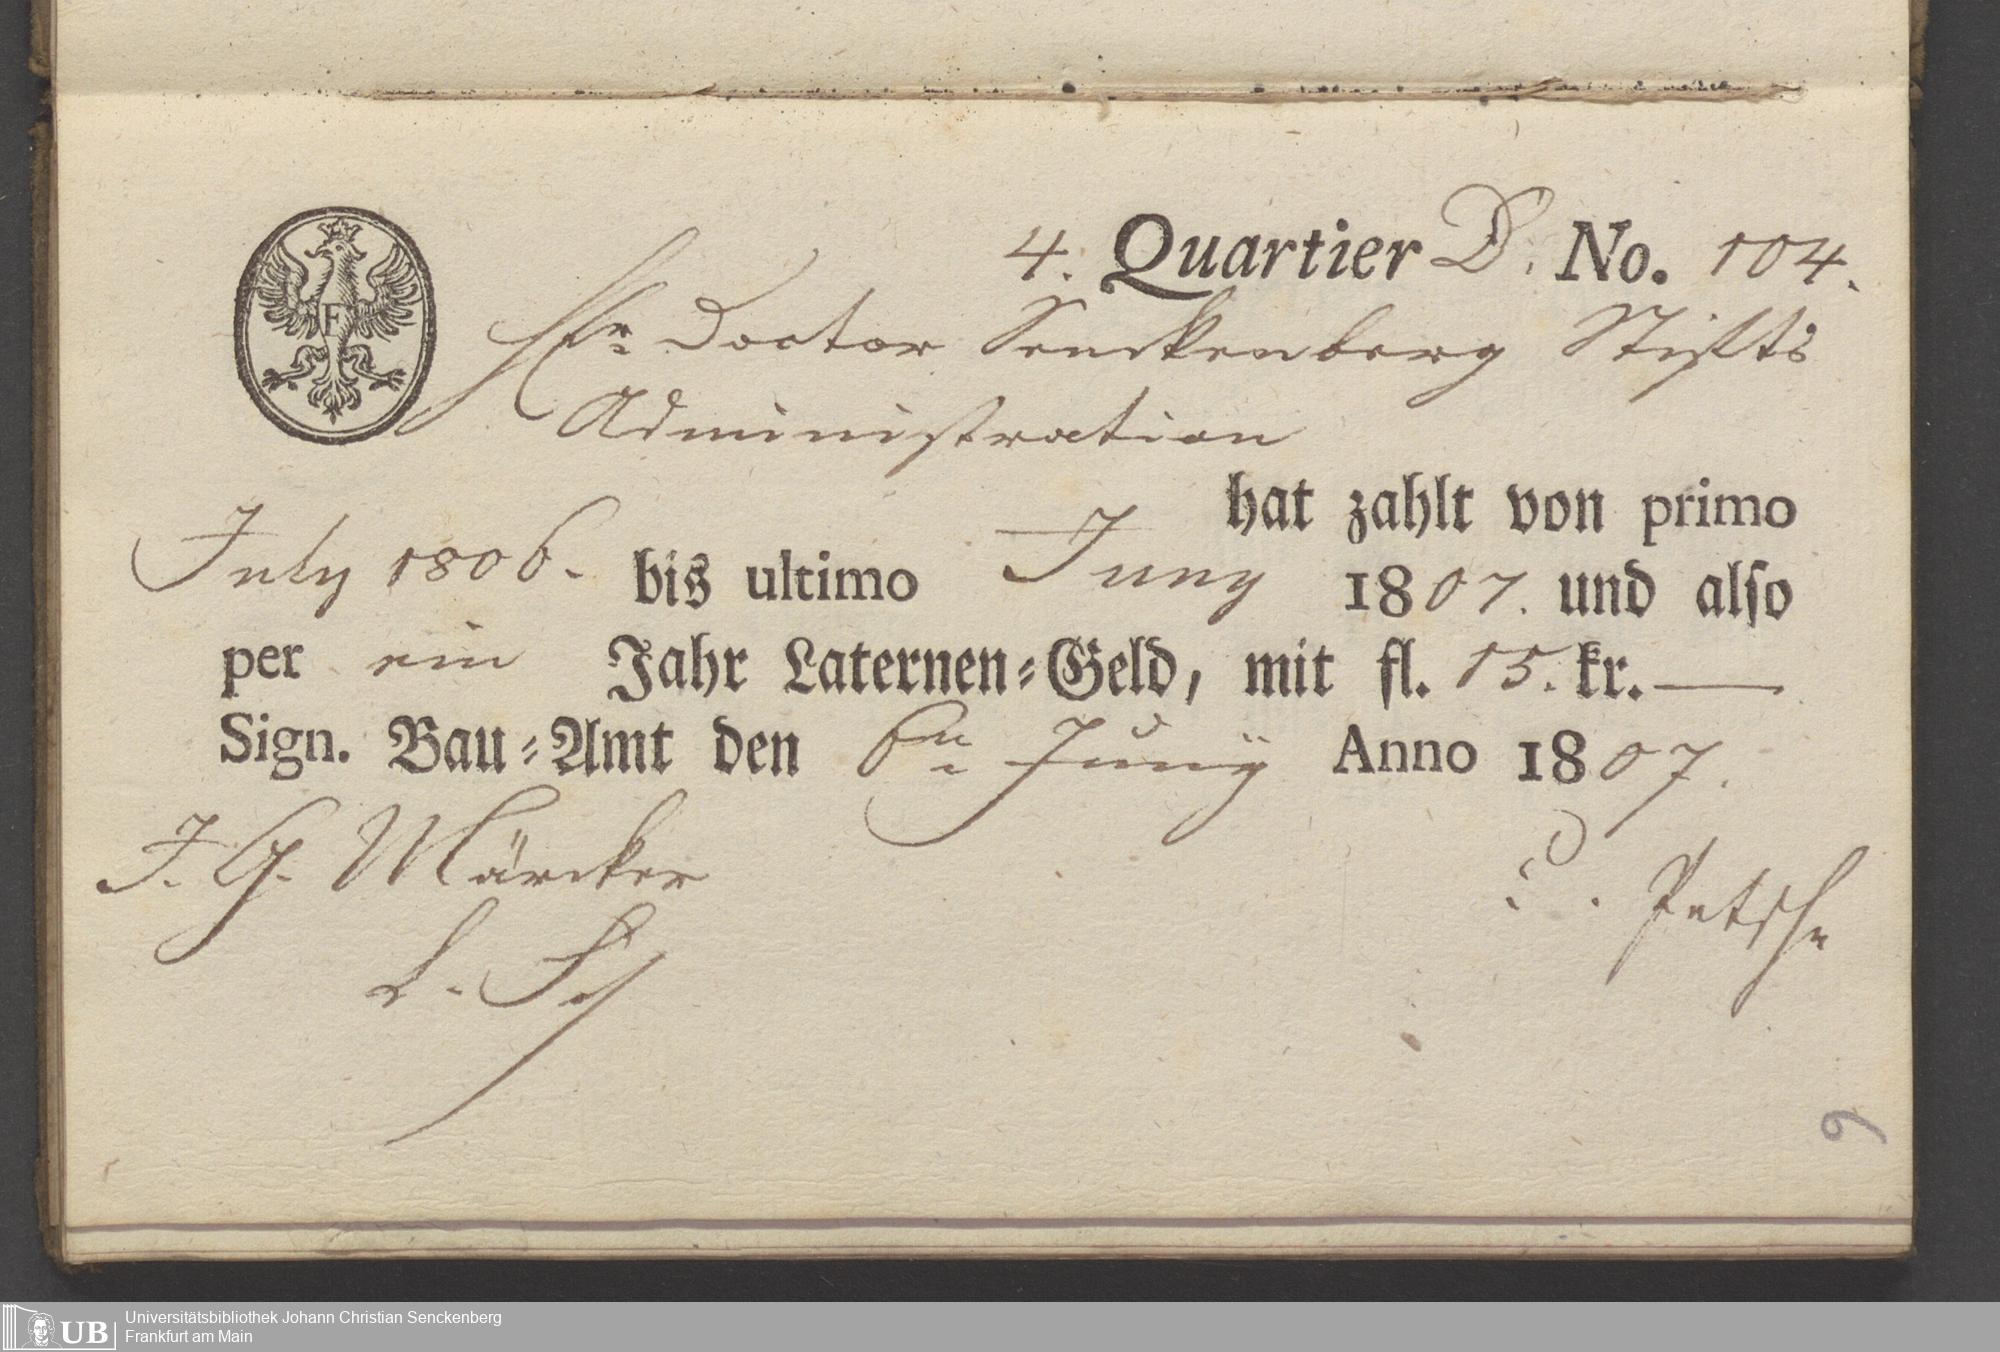 4. Quartier D. No. 104.
F
Hr. Doctor Senckenberg Stifts
Administration
hat zahlt von primo
July 1806. bis ultimo Juny 1807. und also
per ein Jahr Laternen-Geld, mit fl. 15. kr. —
Sign. Bau-Amt den 6n Juny Anno 1807.
J. G. Märcker
Petsche
9
UB Universitätsbibliothek Johann Christian Senckenberg
Frankfurt am Main